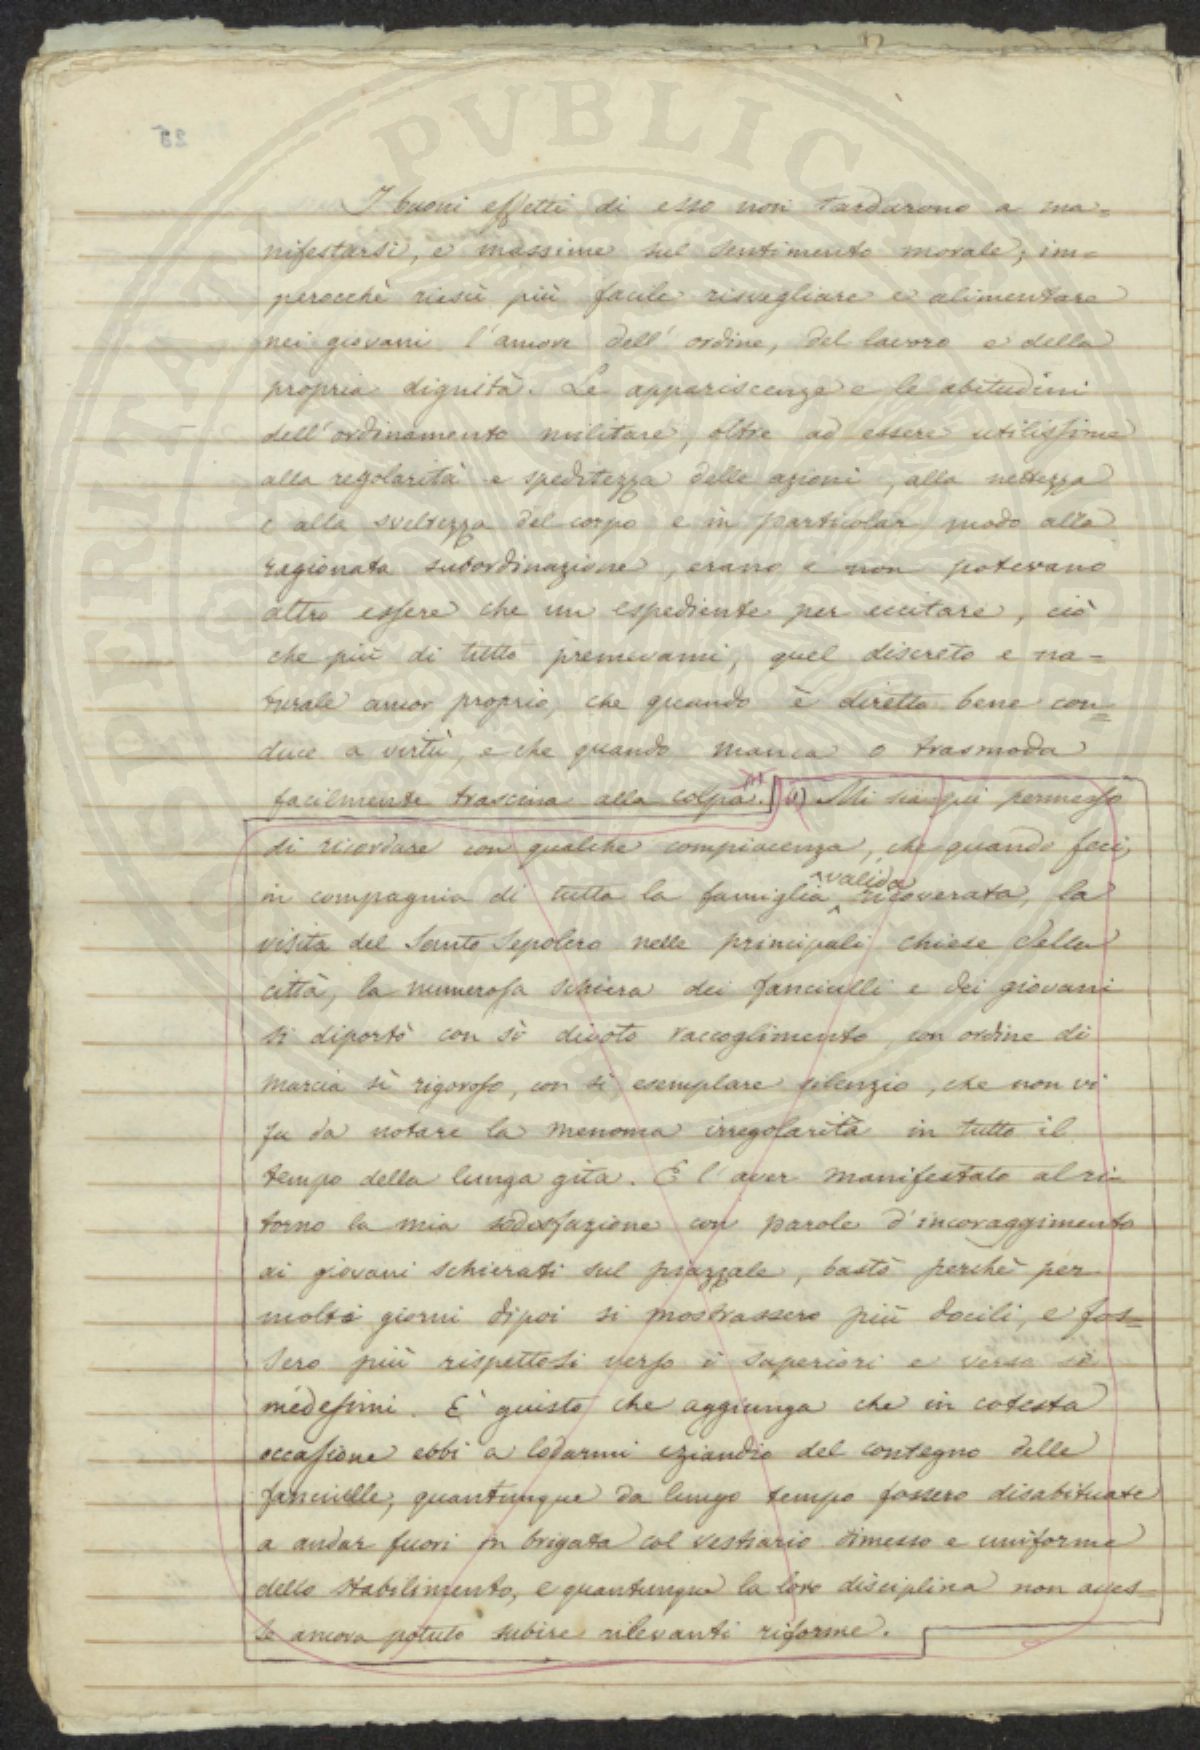 I buoni effetti di esso non tardarono a ma=
nifestarsi, e massime sul sentimento morale; im=
perocchè riescì più facile risvegliare e alimentare
nei giovani l'amore dell'ordine, del lavoro e della
propria dignità. Le appariscenze e le abitudini
dell'ordinamento militare, oltre ad essere utilissime
alla regolarità e speditezza delle azioni, alla nettezza
e alla sveltezza del corpo e in particolar modo alla
ragionata subordinazione, erano e non potevano
altro essere che un espediente per eccitare, ciò
che più di tutto premevami, quel discreto e na=
turale amor proprio, che quando è diretto bene con=
duce a virtù, e che quando manca o trasmoda
facilmente trascina alla colpa. (1) Mi sia qui permesso
di ricordare con qualche compiacenza, che quando feci,
in compagnia di tutta la famiglia valida ricoverata, la
visita del Santo Sepolcro nelle principali chiese della
città, la numerosa schiera dei fanciulli e dei giovani
si diportò con sì divoto raccoglimento, con ordine di
marcia sì rigoroso, con sì esemplare silenzio, che non vi
fu da notare la menoma irregolarità in tutto il
tempo della lunga gita. E l'aver manifestato al ri=
torno la mia sodisfazione con parole d'incoraggimento
ai giovani schierati sul piazzale, bastò perchè per
molti giorni dipoi si mostrassero più docili, e fos=
sero più rispettosi verso i superiori e verso sè
medesimi. È giusto che aggiunga che in cotesta
occasione ebbi a lodarmi eziandio del contegno delle
fanciulle, quantunque da lungo tempo fossero disabituate
a andar fuori in brigata col vestiario dimesso e uniforme
dello Stabilimento, e quantunque la loro disciplina non aves=
se ancora potuto subire rilevanti riforme.
SPERITATI PVBLICAE